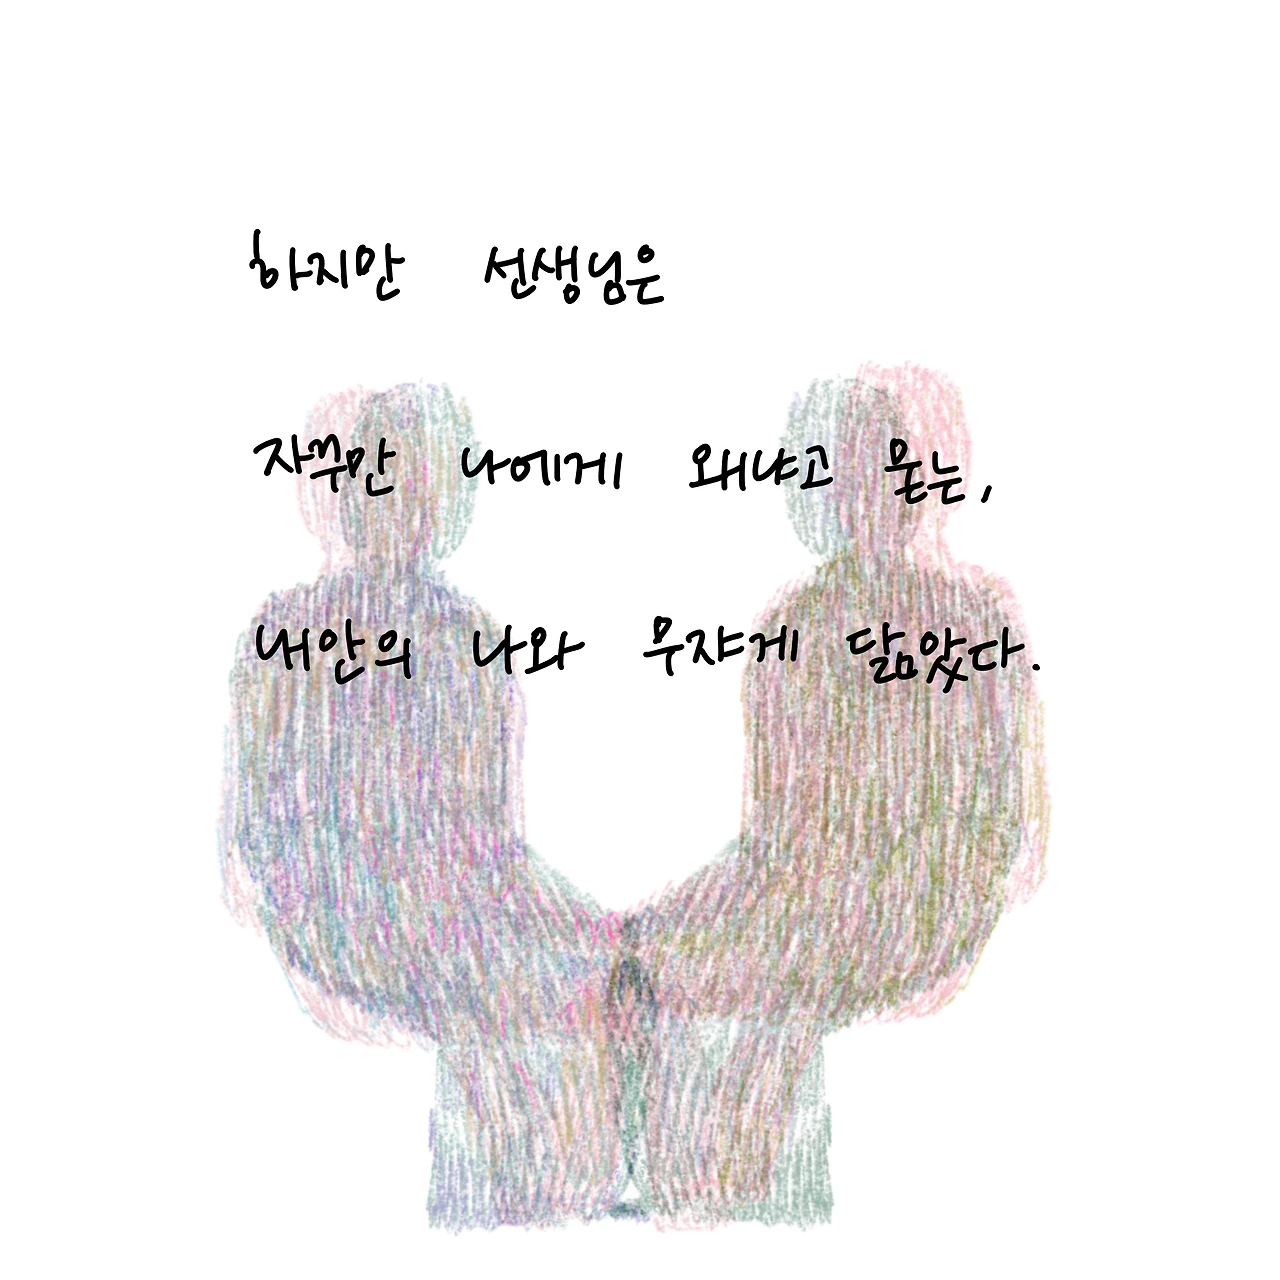 하지만 선생님은
자꾸만 나에게 왜냐고 묻는,
내안의 나와 무쟈게 닮았다.